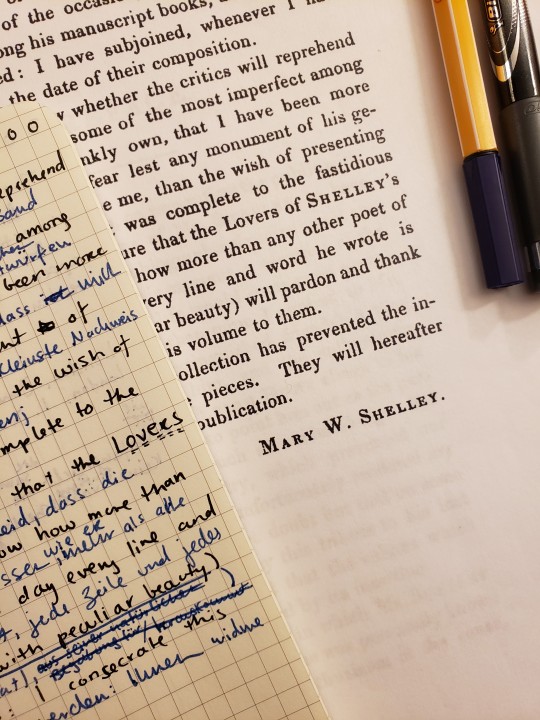 of the occasio
ong his manuscript books,
ed: I have subjoined, whenever I h
the date of their composition.
whether the critics will reprehend
some of the most imperfect among
nkly own, that I have been more
fear lest any monument of his ge-
e me, than the wish of presenting
was complete to the fastidious
ure that the Lovers of SHELLEY'S
how more than any other poet of
very line and word he wrote is
ar beauty) will pardon and thank
is volume to them.
ollection has prevented the in-
pieces. They will hereafter
publication.
MARY W. SHELLEY.
00
eprehend
among
been more
dass will
nt of
kleinste Nachweis
the wish of
mplete to the
that the LOVERS
eid, dass die
ow how more than
wie er
mehr als alle
day every line and
jede Zeile und jedes
with peculiar beauty)
I consecrate this
Ihnen widme